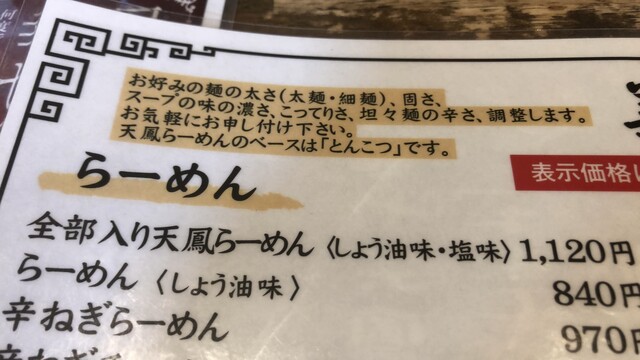 お好みの麺の太さ(太麺・細麺)、固さ、
スープの味の濃さ、こってりさ、坦々麺の辛さ、調整します。
お気軽にお申し付け下さい。
天鳳らーめんのベースは「とんこつ」です。
表示価格
らーめん
全部入り天鳳らーめん〈しょう油味・塩味〉1,120円
らーめん〈しょう油味〉 840円
辛ねぎらーめん 970円